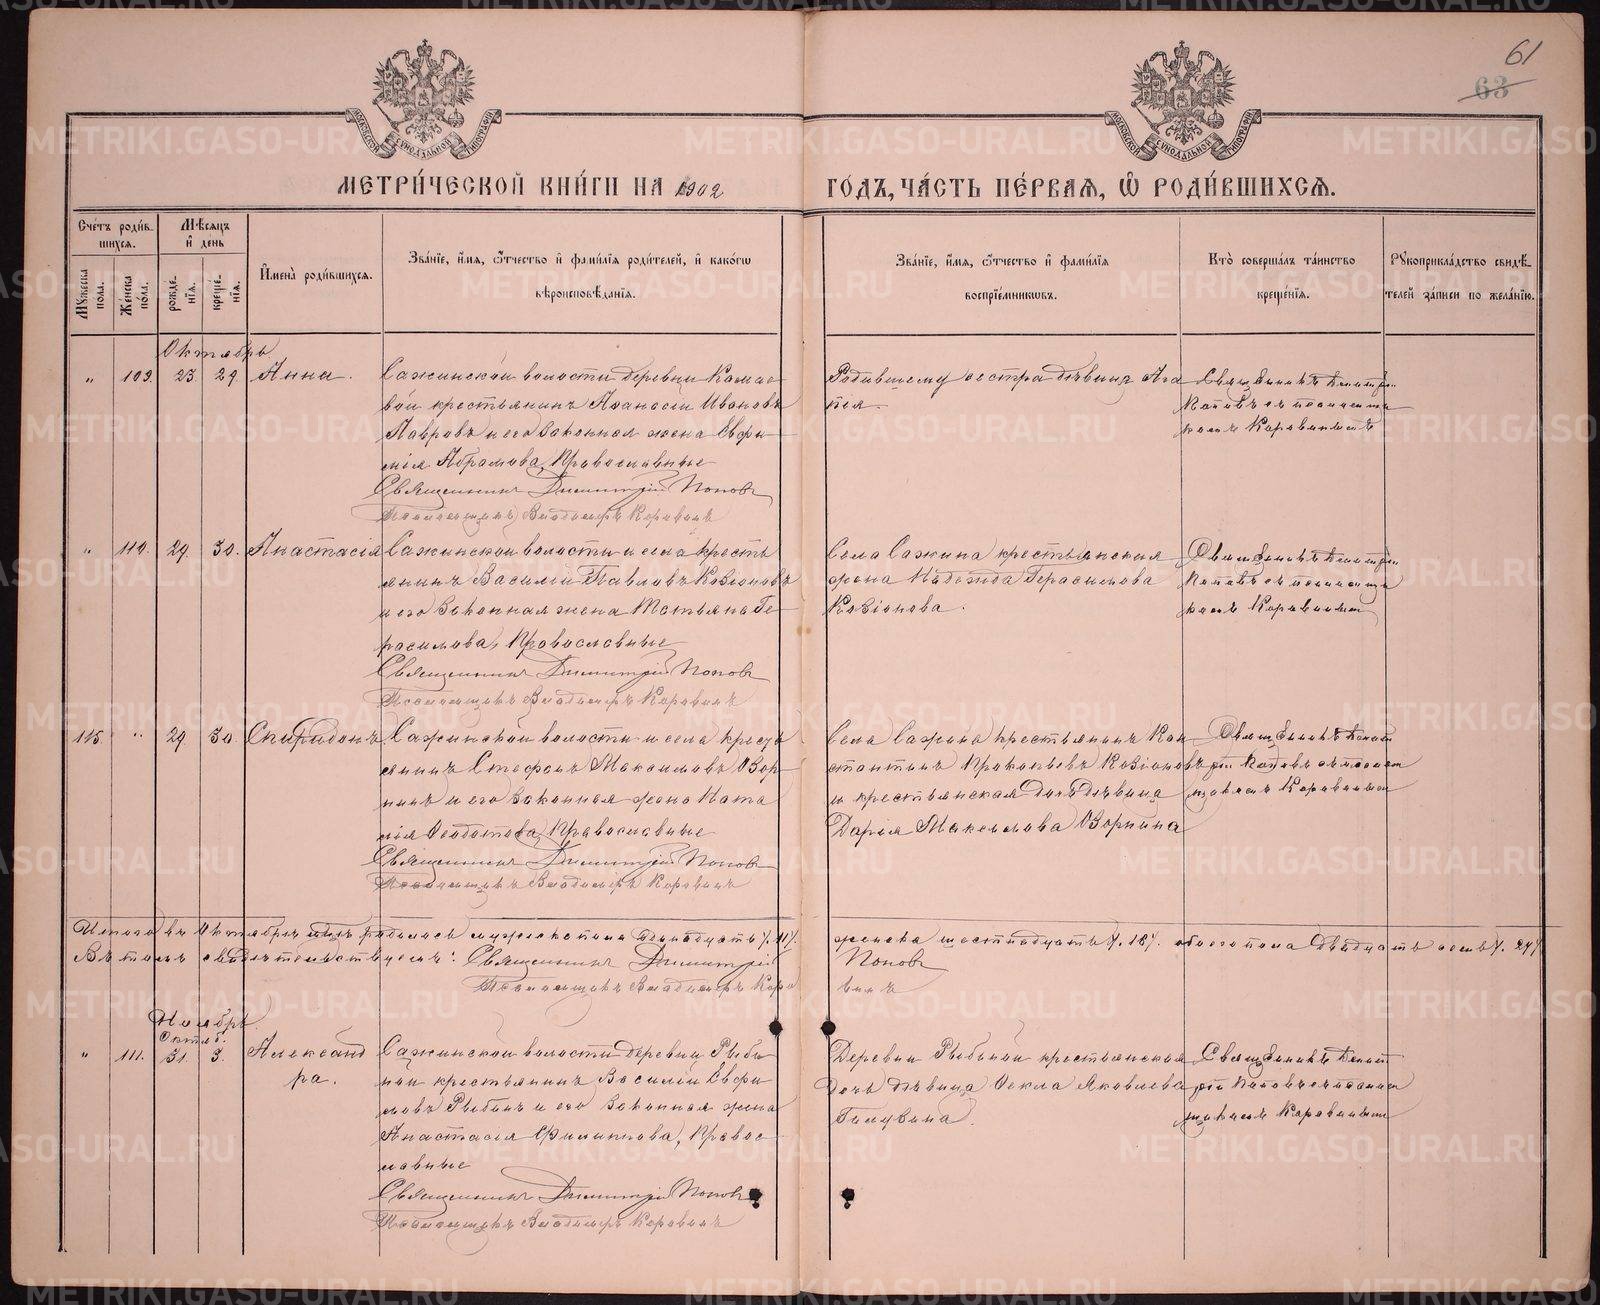 61
63
МОСКОВСКОЙ СѴНОДАЛЬНОЙ ТИПОГРАФІИ
МОСКОВСКОЙ СѴНОДАЛЬНОЙ ТИПОГРАФІИ
МЕТРИ́ЧЕСКОЙ КНИ́ГИ НА 1902
ГО́ДЪ, ЧА́СТЬ ПЕ́РВАЯ, Ѿ РОДИ́ВШИХСЯ.
Сче́тъ роди́в-
шихся.
Мѣ́сяцъ
и҆ де́нь
Му́жеска
по́ла.
Же́нска
по́ла.
рожде́-
нія.
креще́-
нія.
И҆мена̀ роди́вшихся.
Зва́ніе, и҆́мя, ѻ҆́тчество и҆ фами́лія роди́телей, и҆ како́гѡ
вѣроисповѣ́данія.
Зва́ніе, и҆́мя, ѻ҆́тчество и҆ фами́лія
воспріе́мникѡвъ.
Кто̀ соверша́лъ та́инство
креще́нія.
Рꙋкоприкла́дство свидѣ́-
телей за́писи по жела́нію.
Октябрь
" 109. 23. 29. Анна.
Сажинской волости деревни
вой крестьянинъ Аѳанасій Ивановъ
Лавровъ и его законная жена Евфи-
мія Абрамова, Православные
Священникъ Димитрій Поповъ
Псаломщикъ Владимиръ Коровинъ
Родившему сестра дѣвица Ага
пія.
Священникъ Димитрій
Поповъ съ псаломщи
комъ Коровинымъ
" 110. 29. 30. Анастасія
Сажинской волости и села кресть
янинъ Василій Павловъ Козіоновъ
и его законная жена Татьяна Ге-
расимова, Православные
Священникъ Димитрій Поповъ
Псаломщикъ Владимиръ Коровинъ
Села Сажина крестьянская
жена Надежда Герасимова
Козіонова.
Священникъ Димитрій
Поповъ съ псаломщи
комъ Коровинымъ
115. " 29. 30. Спиридонъ
Сажинской волости и села кресть
янинъ Стефанъ Максимовъ Озор-
нинъ и его законная жена Ната
лія Ѳеодотова, Православные
Священникъ Димитрій Поповъ
Псаломщикъ Владимиръ Коровинъ
Села Сажина крестьянинъ Кон
стантинъ Прокопьевъ Козіоновъ
и крестьянская дочь дѣвица
Дарія Максимова Озорнина
Священникъ Димит
рій Поповъ съ псалом
щикомъ Коровинымъ
Итого въ Октябрѣ родилось мужеска пола
женска общего пола двадцать
Въ томъ свидѣтельствуемъ: Священникъ Димитрій
Поповъ
Псаломщикъ Владимиръ Коро
винъ
Ноябрь.
Октяб.
" 111. 31. 3. Александ
ра.
Сажинской волости деревни Рыби
ной крестьянинъ Василій Евфи
мовъ Рыбинъ и его законная жена
Анастасія Филиппова, Правос-
лавные
Священникъ Димитрій Поповъ
Псаломщикъ Владимиръ Коровинъ
Деревни Рыбиной крестьянская
дочь дѣвица Ѳекла Яковлева
Священникъ Димит
рій Поповъ съ псалом
щикомъ Коровинымъ
METRIKI.GASO-URAL.RU